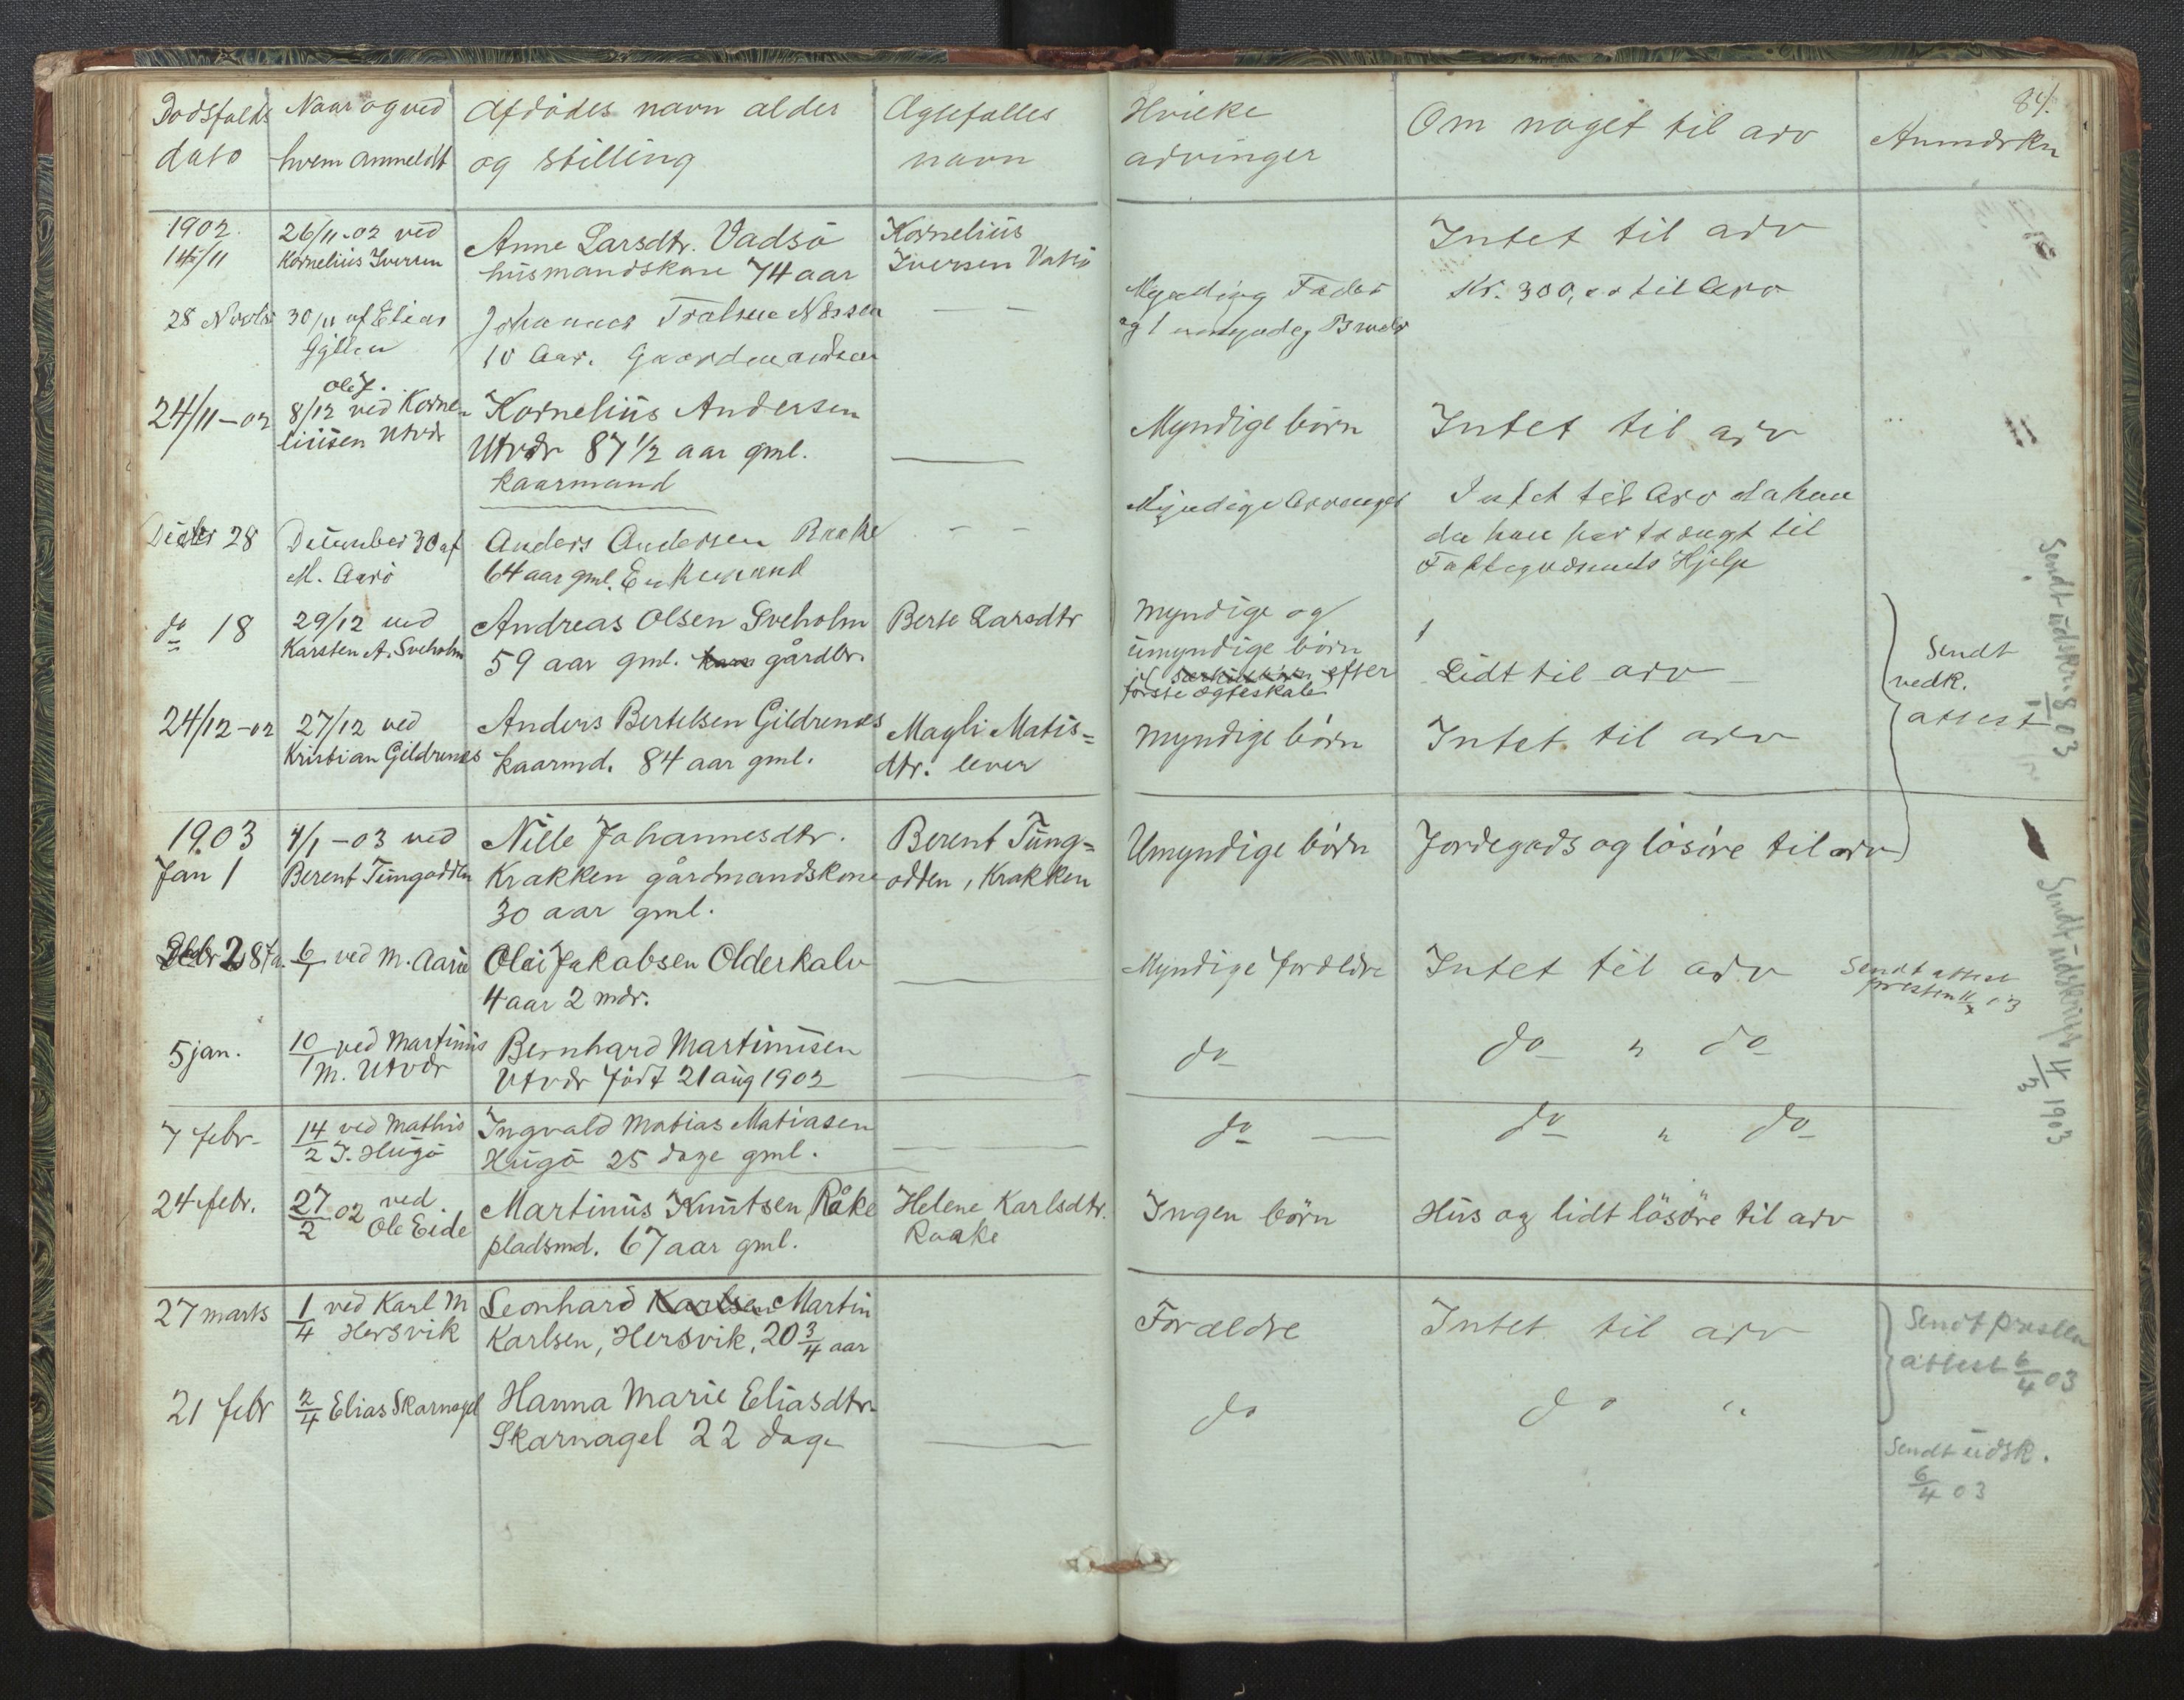 84.
Dødsfalds Naar og ved Afdødes navn alder Ægtefælles Hvilke Om noget til arv Anmerkn
dato hvem anmeldt og stilling navn arvinger
1902. 26/11-02 ved Anne Larsdtr. Vadsö Kornelius Intet til arv
14/11 Kornelius Iversen husmandskone 74 aar Iversen Vadsö
28 Novbr 30/11 af Elias Johannes Næssen — — Myndig Fader Kr. 300, til Arv
Gjillen 10 Aar. Gaardmandsøn og 1 umyndig Broder
Olej.
24/11-02 8/12 ved Korne- Kornelius Andersen Myndige börn Intet til arv
liussen Utvær Utvær 87 1/2 aar gml. —
kaarmand
Decbr 28 December 30 af Anders Andersen Raake — — Myndige Arvinger Intet til Arv da han
M. Aarö 64 aar gml. Enkemand da han har trængt til
Fattigvæsenets Hjelp
do 18 29/12 ved Andreas Olsen Sveholm Berte Larsdtr Myndige og
Karsten A. Sveholm 59 aar gml. gårdbr. umyndige börn Lidt til arv — Sendt
efter vedk.
første ægteskab attest
24/12-02 27/12 ved Anders Bertelsen Gildrenæs Magli Matis= Myndige börn Intet til arv
Kristian Gildrenæs kaarmd. 84 aar gml. dtr. lever
Sendt udskr. 8/1 03
1903 4/1-03 ved Nille Johannesdtr. Berent Tung= Umyndige börn Jordegods og lösöre til arv
Jan 1 Berent Tungodden Krakken gårdmandskone odden, Krakken
30 aar gml.
Decbr 28 f.a. 6/1 ved M. Aarö Olai Jakobsen Olderkalv — Myndige forældre Intet til arv Sendt attest
4 aar 2 mdr. presten 11/2 03
5 jan. 10/1 ved Martinus Bernhard Martinusen — do do " do
M. Utvær Utvær født 21 aug 1902
7 febr- 14/2 ved Mathis Ingvald Matias Matiasen — do — do " do
J. Hugö Hugö 25 dage gml.
Sendt udskrift 4/3 1903
24 febr. 27/2 02 ved Martinus Knutsen Råke Helene Karlsdtr. Ingen börn Hus og lidt lösöre til arv
Ole Eide pladsmd. 67 aar gml. Raake
27 marts 1/4 ved Karl M Leonhard Karlsen Martin Forældre Intet til arv Sendt presten
Hersvik Karlsen, Hersvik, 20 3/4 aar attest 6/4 03
21 febr 2/4 Elias Skarnagel Hanna Marie Eliasdtr. do do "
Skarnagel 22 dage —
Sendt udsk.
6/4 03